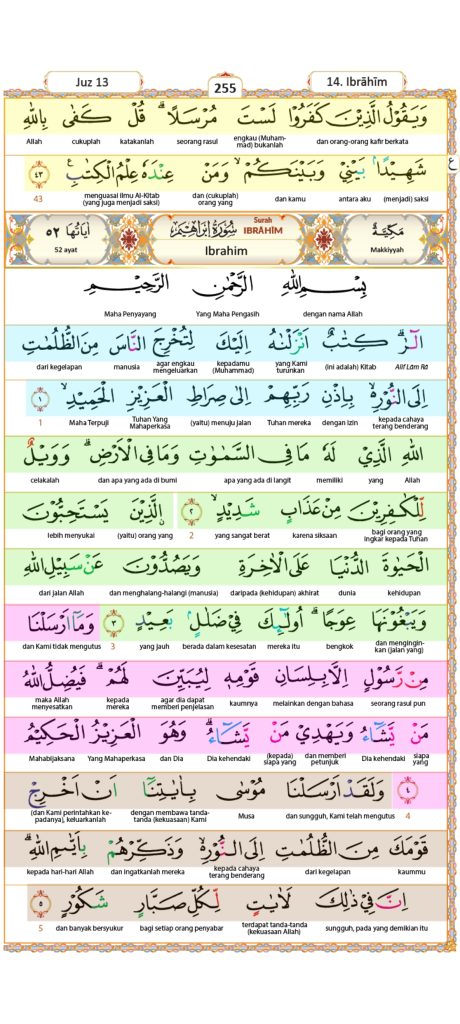 Juz 13
255
14. Ibrāhīm
وَيَقُوْلُ الَّذِيْنَ كَفَرُوْا لَسْتَ مُرْسَلًاۗ قُلْ كَفٰى بِاللّٰهِ
dan orang-orang kafir berkata engkau (Muhammad) bukanlah seorang rasul katakanlah cukuplah Allah
شَهِيْدًاۢ بَيْنِيْ وَبَيْنَكُمْۙ وَمَنْ عِنْدَهٗ عِلْمُ الْكِتٰبِ ࣖ ٤٣
ع
(menjadi) saksi antara aku dan kamu dan (cukuplah) orang yang menguasai ilmu Al-Kitab (yang juga menjadi saksi) 43
مَكِّيَّة سُوْرَةُ اِبْرَاهِيْمَ Surah IBRĀHĪM اٰيَاتُهَا ٥٢
Makkiyyah Ibrahim 52 ayat
بِسْمِ اللّٰهِ الرَّحْمٰنِ الرَّحِيْمِ
dengan nama Allah Yang Maha Pengasih Maha Penyayang
الۤرٰۗ كِتٰبٌ اَنْزَلْنٰهُ اِلَيْكَ لِتُخْرِجَ النَّاسَ مِنَ الظُّلُمٰتِ
Alif Lām Rā (ini adalah) Kitab yang Kami turunkan kepadamu (Muhammad) agar engkau mengeluarkan manusia dari kegelapan
اِلَى النُّوْرِ ەۙ بِاِذْنِ رَبِّهِمْ اِلٰى صِرَاطِ الْعَزِيْزِ الْحَمِيْدِۙ ١
kepada cahaya terang benderang dengan izin Tuhan mereka (yaitu) menuju jalan Tuhan Yang Mahaperkasa Maha Terpuji 1
اللّٰهِ الَّذِيْ لَهٗ مَا فِى السَّمٰوٰتِ وَمَا فِى الْاَرْضِۗ وَوَيْلٌ
Allah yang memiliki apa yang ada di langit dan apa yang ada di bumi celakalah
لِّلْكٰفِرِيْنَ مِنْ عَذَابٍ شَدِيْدٍۙ ٢ ۨالَّذِيْنَ يَسْتَحِبُّوْنَ
bagi orang yang ingkar kepada Tuhan karena siksaan yang sangat berat 2 (yaitu) orang yang lebih menyukai
الْحَيٰوةَ الدُّنْيَا عَلَى الْاٰخِرَةِ وَيَصُدُّوْنَ عَنْ سَبِيْلِ اللّٰهِ
kehidupan dunia daripada (kehidupan) akhirat dan menghalang-halangi (manusia) dari jalan Allah
وَيَبْغُوْنَهَا عِوَجًاۗ اُولٰۤىِٕكَ فِيْ ضَلٰلٍۢ بَعِيْدٍ ٣ وَمَآ اَرْسَلْنَا
dan menginginkan (jalan yang) bengkok mereka itu berada dalam kesesatan yang jauh 3 dan Kami tidak mengutus
مِنْ رَّسُوْلٍ اِلَّا بِلِسَانِ قَوْمِهٖ لِيُبَيِّنَ لَهُمْۗ فَيُضِلُّ اللّٰهُ
seorang rasul pun melainkan dengan bahasa kaumnya agar dia dapat memberi penjelasan kepada mereka maka Allah menyesatkan
مَنْ يَّشَاۤءُ وَيَهْدِيْ مَنْ يَّشَاۤءُۗ وَهُوَ الْعَزِيْزُ الْحَكِيْمُ
siapa yang Dia kehendaki dan memberi petunjuk (kepada) siapa yang Dia kehendaki dan Dia Yang Mahaperkasa Mahabijaksana
٤ وَلَقَدْ اَرْسَلْنَا مُوْسٰى بِاٰيٰتِنَآ اَنْ اَخْرِجْ
4 dan sungguh, Kami telah mengutus Musa dengan membawa tanda-tanda (kekuasaan) Kami (dan Kami perintahkan kepadanya), keluarkanlah
قَوْمَكَ مِنَ الظُّلُمٰتِ اِلَى النُّوْرِ ەۙ وَذَكِّرْهُمْ بِاَيّٰىمِ اللّٰهِۗ
kaummu dari kegelapan kepada cahaya terang benderang dan ingatkanlah mereka kepada hari-hari Allah
اِنَّ فِيْ ذٰلِكَ لَاٰيٰتٍ لِّكُلِّ صَبَّارٍ شَكُوْرٍ ٥
sungguh, pada yang demikian itu terdapat tanda-tanda (kekuasaan Allah) bagi setiap orang penyabar dan banyak bersyukur 5